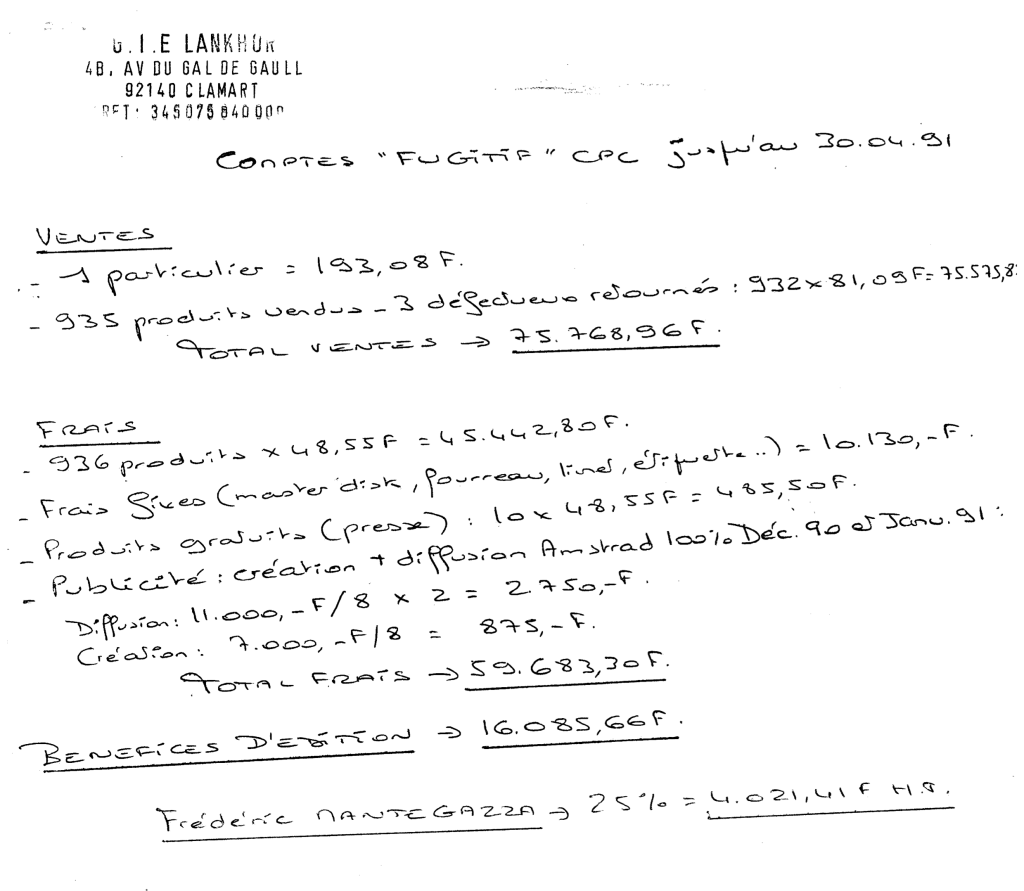 G.I.E LANKHOR
4B, AV DU GAL DE GAULL
92140 CLAMART
RET: 345075840000
COMPTES "FUGITIF" CPC jusqu'au 30.04.91
VENTES
- 1 particulier = 193,08 F.
- 935 produits vendus - 3 défectueux retournés : 932 x 81,09F= 75.575,8
TOTAL VENTES → 75.768,96 F.
FRAIS
- 936 produits x 48,55F = 45.442,80F.
- Frais fixes (master disk, fourreau, livret, étiquette..) = 10.130,-F.
- Produits gratuits (presse) : 10 x 48,55F = 485,50F.
- Publicité : création + diffusion Amstrad 100% Déc. 90 et Janv. 91 :
Diffusion : 11.000,-F/8 x 2 = 2.750,-F.
Création : 7.000,-F/8 = 875,-F.
TOTAL FRAIS → 59.683,30F.
BENEFICES D'EDITION → 16.085,66F.
Frédéric MANTEGAZZA → 25% = 4.021,41 F H.T.